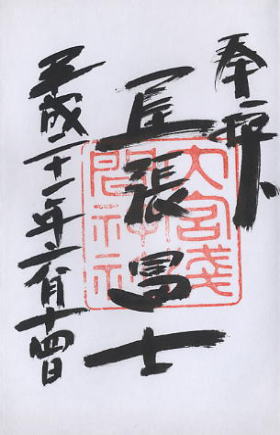 奉拝
尾張冨士
大宮浅間神社
平成二十一年六月十四日